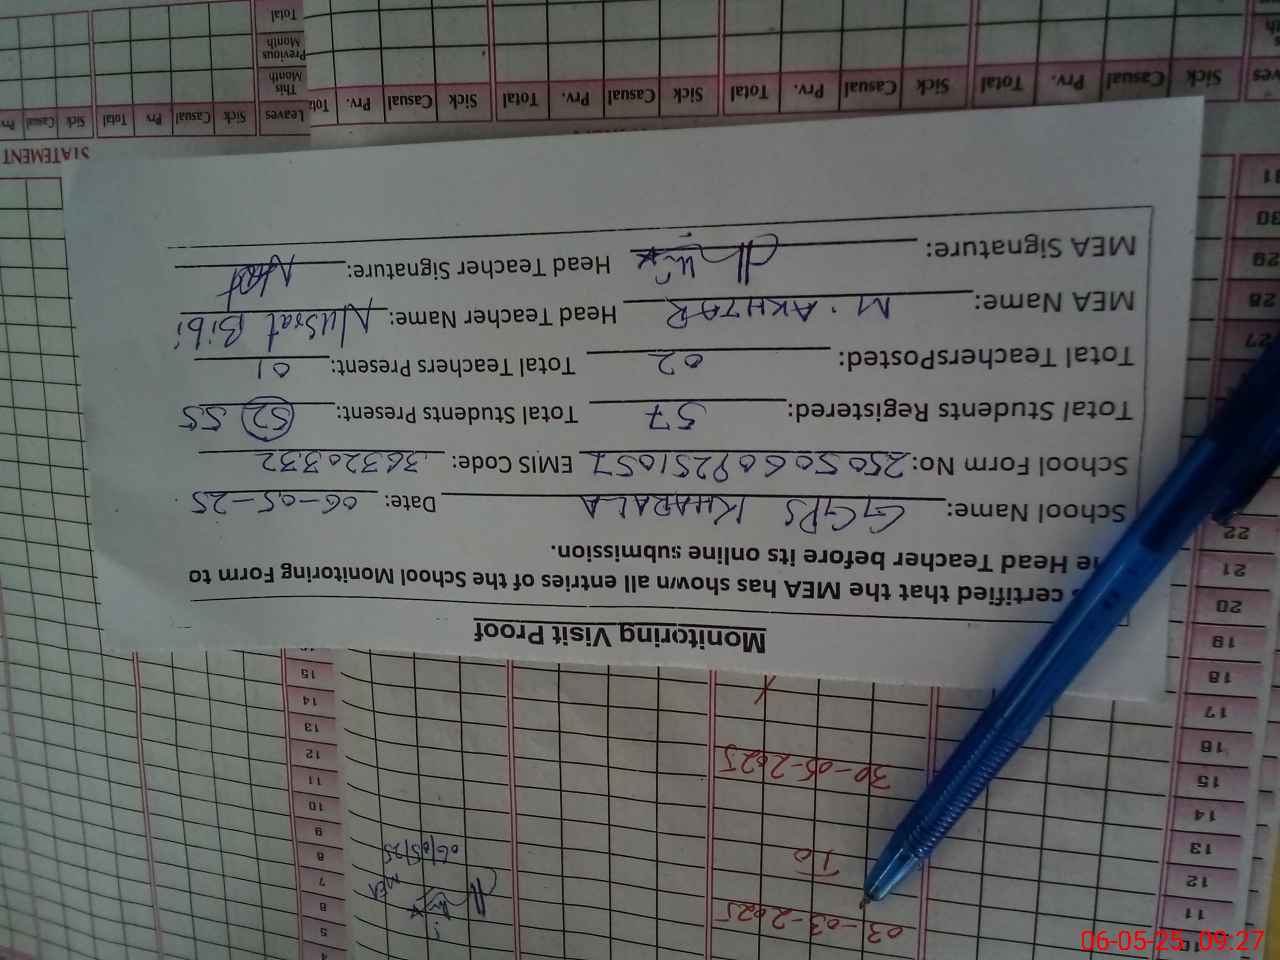 Monitoring Visit Proof
certified that the MEA has shown all entries of the School Monitoring Form to
Head Teacher before its online submission.
School Name: GGPS KHARALA Date: 06-05-25
School Form No: 25050609251057 EMIS Code: 36320332
Total Students Registered: 57 Total Students Present: 52 55
Total TeachersPosted: 02 Total Teachers Present: 01
MEA Name: M. AKHTAR Head Teacher Name: Nusrat Bibi
MEA Signature: Head Teacher Signature:
03-03-2025
To
30-05-2025
MEA
06/05/25
4
5
6
7
8
9
10
11
12
13
14
15
11
12
13
14
15
16
17
18
19
20
21
22
27
28
29
30
31
STATEMENT
Leaves Sick Casual Prv Total Sick Casual Prv
This Month
Previous Month
Total
Sick Casual Prv. Total Sick Casual Prv. Total Sick Casual Prv. Total Sick Casual Prv.
06-05-25 09:27